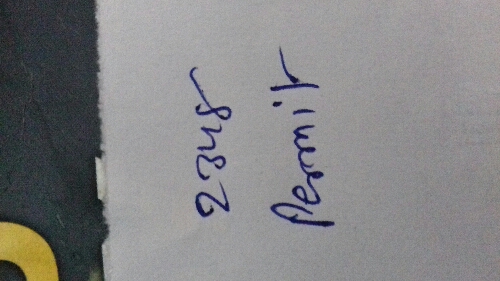 2345
Permit